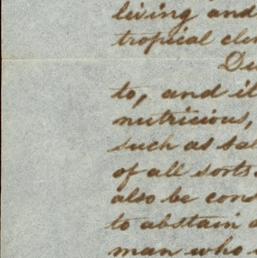 living and
tropical
to, and
nutricious,
such as
of all sorts
also be
to abstain
man who